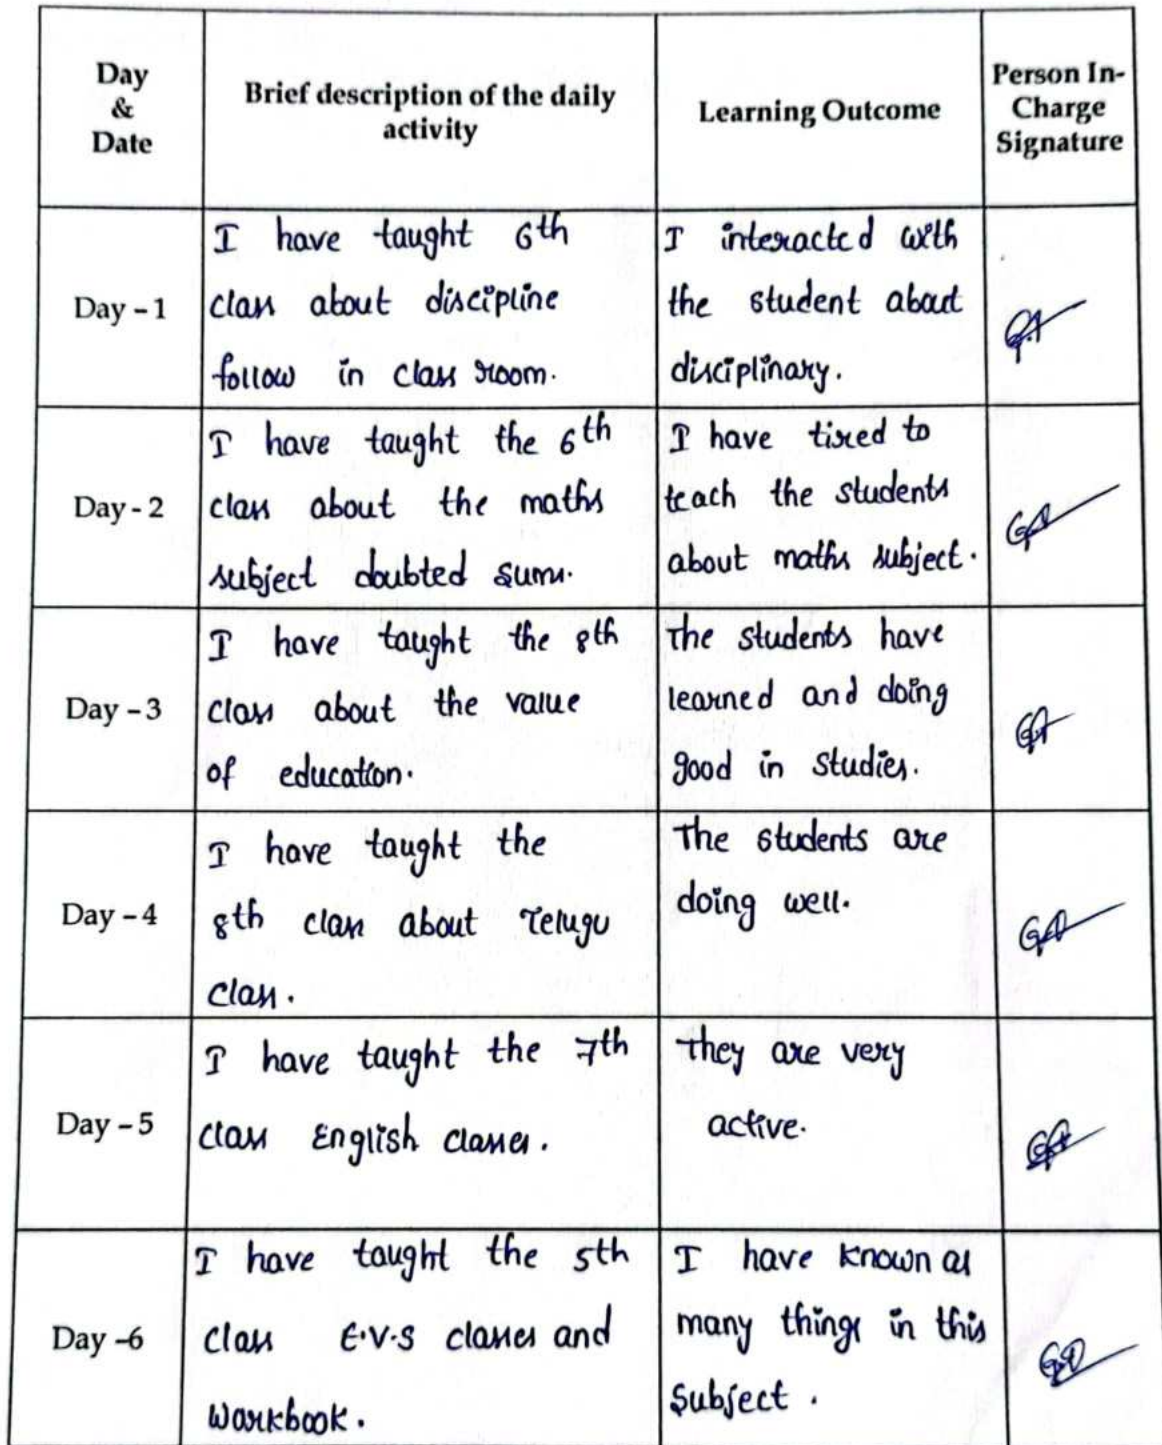 Day
&
Date
Brief description of the daily
activity
Learning Outcome
Person In-
Charge
Signature
Day – 1
I have taught 6th
class about discipline
follow in class room.
I interacted with
the student about
disciplinary.
Day - 2
I have taught the 6th
class about the maths
subject doubted sums.
I have tired to
teach the students
about maths subject.
Day – 3
I have taught the 8th
class about the value
of education.
The students have
learned and doing
good in studies.
Day – 4
I have taught the
8th class about Telugu
class.
The students are
doing well.
Day – 5
I have taught the 7th
class English classes.
They are very
active.
Day –6
I have taught the 5th
class E.V.S classes and
workbook.
I have known as
many things in this
subject.